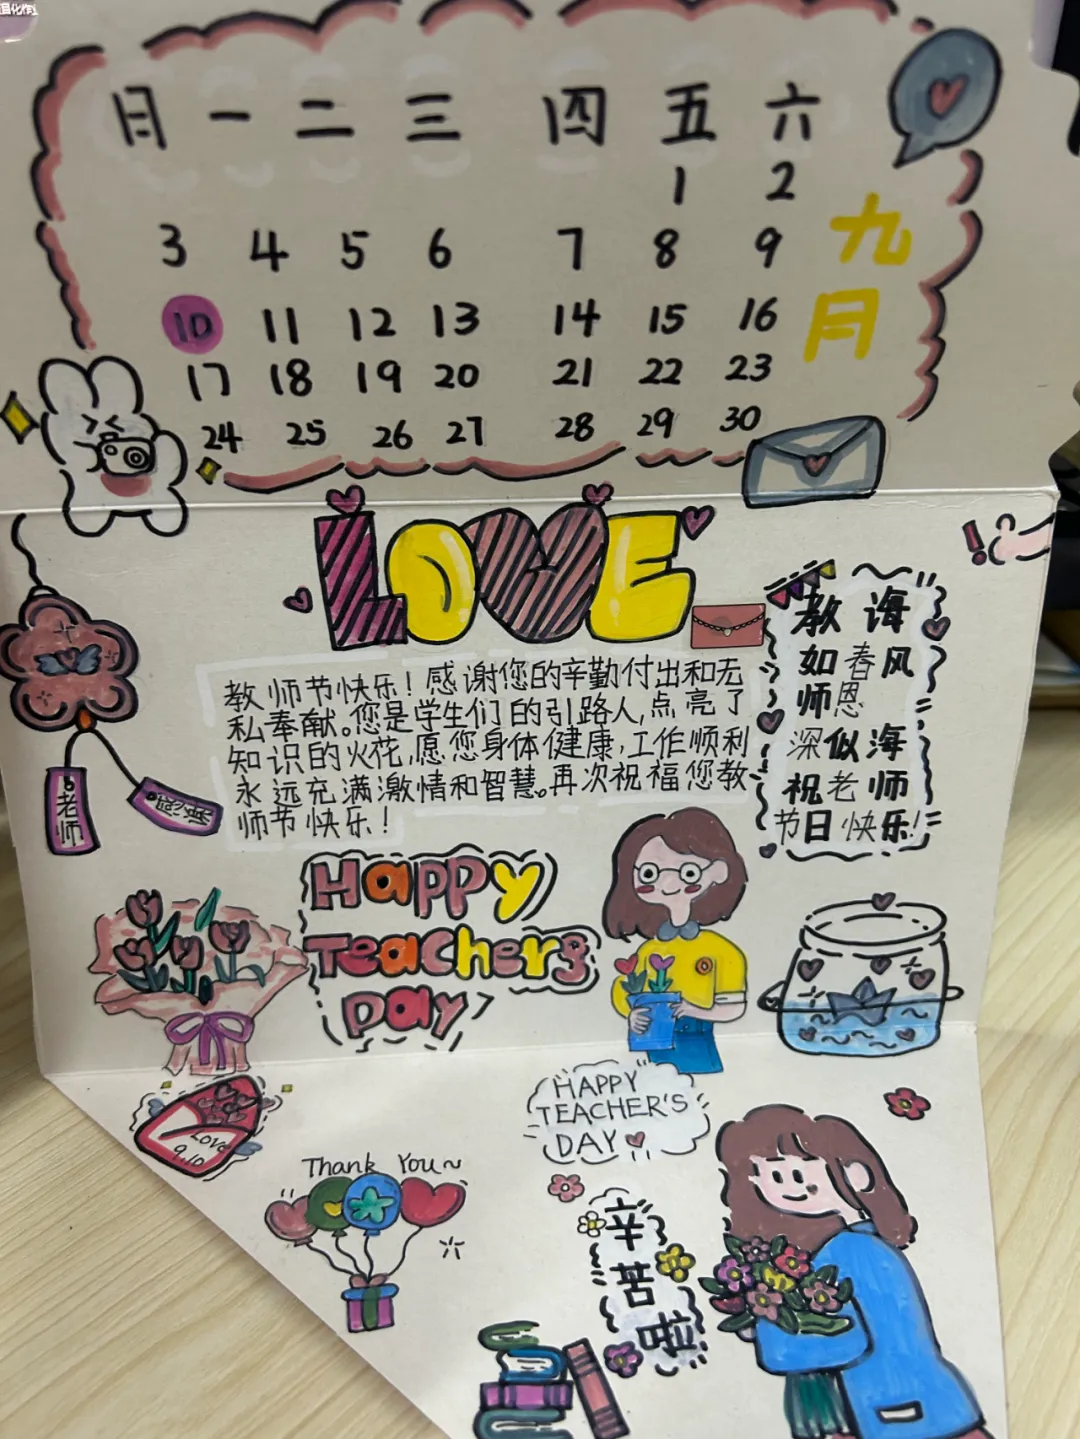 日 一 二 三 四 五 六
1 2
3 4 5 6 7 8 9
10 11 12 13 14 15 16
17 18 19 20 21 22 23
24 25 26 27 28 29 30
九
月
LOVE
教师节快乐！感谢您的辛勤付出和无
私奉献。您是学生们的引路人,点亮了
知识的火花,愿您身体健康,工作顺利
永远充满激情和智慧。再次祝福您教
师节快乐！
教诲
如春风
师恩
深似海
祝老师
节日快乐!
老师
HAPPY
TeacherS
Day
LOVE
9.10
Thank You~
HAPPY
TEACHER'S
DAY
辛
苦
啦